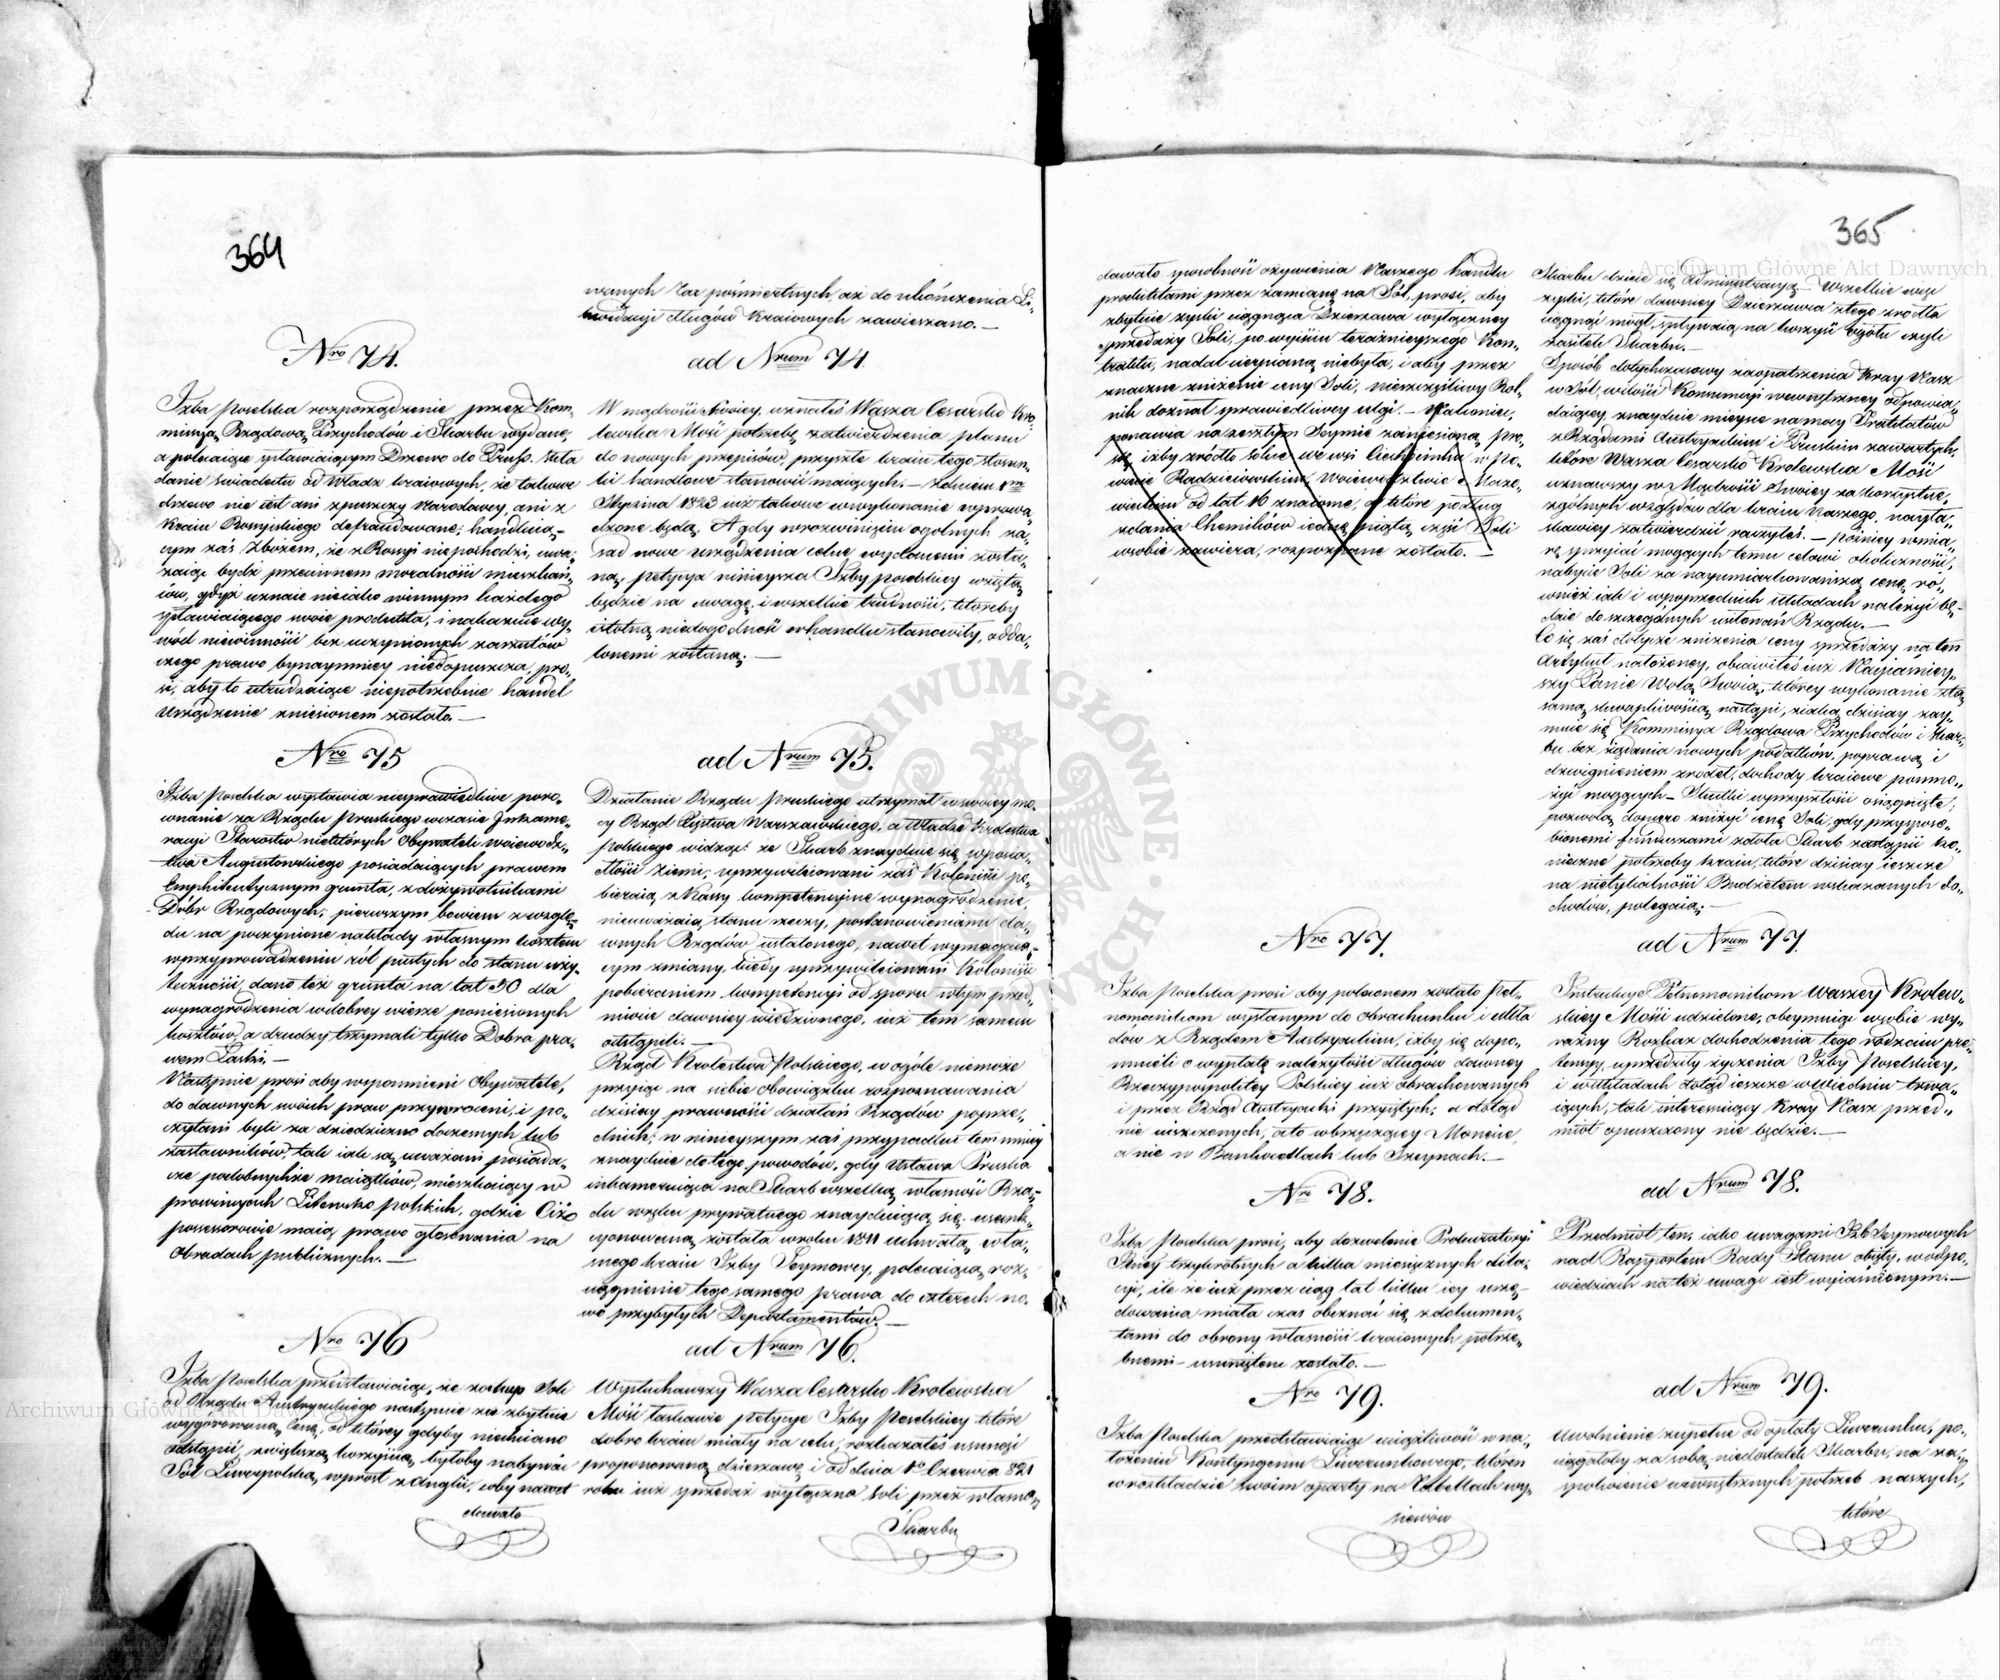 364
wanych kar pośmiertnych, aż do ukończenia Li„
kwidacyi długów Kraiowych zawieszano. —
Nro 74.
Izba Poselska rozporządzenie przez Kom„
missyą Rządową Przychodów i Skarbu wydane,
a polecaiące spławiaiącym Drzewo do Pruss. skła
danie świadectw od Władz kraiowych, że takowe
drzewo nie iest ani z puszczy Narodowey, ani z
Kraiu Rossyiskiego defraudowane; handluią„
cym zaś Zbożem, że z Rossyi nie pochodzi, uwa„
żaiąc bydź przeciwnem moralności mieszkań„
ców, gdyż uznaie nieiako winnym każdego
spławiaiącego swoie produkta, i nakazuie wy„
wód niewinności bez uczynionych zarzutów
czego prawo bynaymniey niedopuszcza, pro„
si, aby to utrudzaiące niepotrzebnie handel
Urządzenie zniesionem zostało. —
Nro 75
Izba Poselska wystawia niesprawiedliwe poro„
wnanie za Rządu Pruskiego w czasie Inkame„
racyi Starostw niektórych Obywateli woiewodz„
twa Augustowskiego posiadaiących prawem
Emphiteutycznym grunta, z dożywotnikami
Dóbr Rządowych; pierwszym bowiem z wzglę„
du na poczynione nakłady własnym kosztem
w przyprowadzeniu ról pustych do stanu uży„
teczności, dano też grunta na lat 50 dla
wynagrodzenia w dobrey wierze poniesionych
kosztów, a drudzy trzymali tylko Dobra pra„
wem Łaski. —
Następnie prosi aby wspomnieni Obywatele,
do dawnych swoich praw przywróceni, i po„
czytani byli za dziedziczno doczesnych lub
zastawników, tak iak są uważani posiada„
cze podobnychże maiątków, mieszkaiący w
prowincyach Litewsko polskich, gdzie Ciż
possessorowie maią prawo głosowania na
Obradach publicznych. —
Nro 76
Izba Poselska przedstawiaiąc, że zakup Soli
od Rządu Austryackiego następnie za zbytnie
wygórowaną Cenę, od którey gdyby niechciano
odstąpić, z większą korzyścią byłoby nabywać
Sól Liwerpolską, wprost z Anglii, coby nawet
dawało
ad Nrum 74.
W mądrości Swoiey, uznałeś Wasza Cesarsko Kró
lewska Mość potrzebę zatwierdzenia planu
do nowych przepisów, przyszłe kraiu tego stosun„
ki handlowe stanowić maiących. — Z dniem 1m
Stycznia 1823 iuż takowe w wykonanie wprowa„
dzone będą. A gdy w rozwinięciu ogólnych za„
sad nowe urządzenia celne wydanemi zosta„
ną; petycya ninieysza Izby poselskiey wzięta
będzie na uwagę, i wszelkie trudności, któreby
istotną niedogodność w handlu stanowiły, odda„
lonemi zostaną. —
ad Nrum 75.
Działanie Rządu Pruskiego utrzymał w swoiey mo„
cy Rząd Xięstwa Warszawskiego, a Władze Królestwa
Polskiego widząc: że Skarb znayduie się w posia„
dłości Ziemi; uprzywileiowani zaś Koloniści po„
bieraią z Kassy kompetencyine wynagrodzenie,
nieuważaią stanu rzeczy, postanowieniami da„
wnych Rządów ustalonego, nawet wymagaią„
cym zmiany, kiedy uprzywileiowani Koloniści
pobieraniem kompetencyi od sporu w tym przed„
miocie dawniey wiedzionego, iuż tem samem
odstąpili. —
Rząd Królestwa Polskiego, w ogóle niemoże
przyiąć na siebie obowiązku rozpoznawania
dzisiay prawności działań Rządów poprze„
dnich; w ninieyszym zaś przypadku tem mniey
znayduie do tego powodów, gdy Ustawa Pruska
inkameruiąca na Skarb wszelką własność Rzą„
du względu prywatnego znayduiącą się, usank„
cyonowaną została w roku 1811 uchwałą, wła„
snego kraiu Izby Seymowey, polecaiącą roz„
ciągnienie tego samego prawa do czterech no„
wo przybyłych Departamentów. —
ad Nrum 76.
Wysłuchawszy Wasza Cesarsko Królewska
Mość łaskawie petycye Izby Poselskiey które
dobro kraiu miały na celu, rozkazałeś usunąć
proponowaną dzierżawę, i od dnia 1o Czerwca 821
roku iuż sprzedaż wyłączna Soli przez własną„
Skarbu
365
dawało sposobność ożywienia Naszego handlu
produktami przez zamianę na Sól, prosi, aby
zbytnie zyski ciągnąca Dzierżawa wyłączney
sprzedaży Soli, po wyiściu teraźnieyszego Kon„
traktu, nadal cierpianą niebyła, i aby przez
znaczne zniżenie ceny Soli, nieszczęśliwy Rol„
nik doznał sprawiedliwey ulgi. — Nakoniec,
ponawia na zeszłym Seymie zaniesioną pro„
śbę, iżby źródło Solne we wsi Ciechocinka w Po„
wiecie Radzieiowskim, Woiewództwie Mazo„
wieckim od lat 16 znaiome, a które podług
zdania Chemików iedną piątą część Soli
w sobie zawiera, rozpoznane zostało. —
Nro 77.
Izba Poselska prosi aby poleconem zostało Peł„
nomocnikom wysłanym do obrachunku i ukła
dów z Rządem Austryackim, iżby się dopo„
mnieli o wypłatę należytości długów dawney
Rzeczypospolitey Polskiey iuż obrachowanych
i przez Rząd Austryacki przyiętych; a dotąd
nie uiszczonych, a to w brzęczącey Monecie,
a nie w Bankocetlach lub Szeynach. —
Nro 78.
Izba Poselska prosi, aby dozwolenie Prokuratoryi
Jlney trzykrotnych a kilka miesięcznych dila„
cyi, ile że iuż przez ciąg lat kilku iey urzę„
dowania miała czas obeznać się z dokumen„
tami do obrony własności kraiowych potrze„
bnemi — usunięte zostało. —
Nro 79.
Izba Poselska przedstawiaiąc uciążliwość w na„
łożeniu Kontyngensu Liwerunkowego, który
w rozkładzie swoim oparty na Tabellach wy„
siewów
Skarbu dzieie się Administracyą. — Wszelkie więc
zyski, które dawniey Dzierżawca z tego źródła
ciągnąć mógł, spływaią na korzyść ogółu czyli
zasiłek Skarbu. —
Sposób dotychczasowy zaopatrzenia Kray Nasz
w Sól, w ilości Konsumcyi wewnętrzney odpowia„
daiącey, znayduie mieysce na mocy Traktatów
z Rządami Austryackim i Pruskim zawartych,
które Wasza Cesarsko Królewska Mość
uznawszy w Mądrości Swoiey za korzystne,
z gólnych względów dla kraiu Naszego, nayła„
skawiey zatwierdzić raczyłeś. — Późniey w mia„
rę sprzyiać mogących temu celowi okoliczności,
nabycie Soli za nayumiarkowańszą cenę, ró„
wnież iak i w poprzednich układach należyć bę„
dzie do szczegulnych usiłowań Rządu. —
Co się zaś dotycze zniżenia ceny sprzedaży na ten
Artykuł nałożoney, obiawiłeś iuż Nayiaśniey„
szy Panie Wolą Swoią, którey wykonanie z tą
samą skwapliwością nastąpi, z iaką dzisiay zay„
muie się Kommissya Rządowa Przychodów i Skar„
bu bez żądania nowych podatków, poprawą i
dzwignieniem źródeł, dochody kraiowe pomno„
żyć mogących — Skutki w przyszłości osiągnięte,
pozwolą dopiero zniżyć cenę Soli, gdy przysposo„
bionemi funduszami zdoła Skarb zastąpić ko„
nieczne potrzeby kraiu, które dzisiay ieszcze
na nietykalności Budżetem wskazanych do„
chodów, polegaią. —
ad Nrum 77.
Instrukcye Pełnomocnikom Waszey Królew„
skiey Mości udzielone, obeymuiąc w sobie wy„
raźny Rozkaz dochodzenia tego rodzaiu pre„
tensyi, uprzedziły życzenia Izby Poselskiey,
i w układach dotąd ieszcze w Wiedniu trwa„
iących, tak interessuiący Kray Nasz przed„
miot opuszczony nie będzie. —
ad Nrum 78.
Przedmiot ten, iako uwagami Izb Seymowych
nad Rapportem Rady Stanu obięty, w odpo„
wiedziach na też uwagi iest wyiaśnionym. —
ad Nrum 79.
Uwolnienie zupełne od opłaty Liwerunku, po„
ciągałoby za sobą niedostatek Skarbu, na za„
spokoienie wewnętrznych potrzeb naszych,
które
Archiwum Główne Akt Dawnych
Archiwum Główne Akt Dawnych
ARCHIWUM GŁÓWNE AKT DAWNYCH